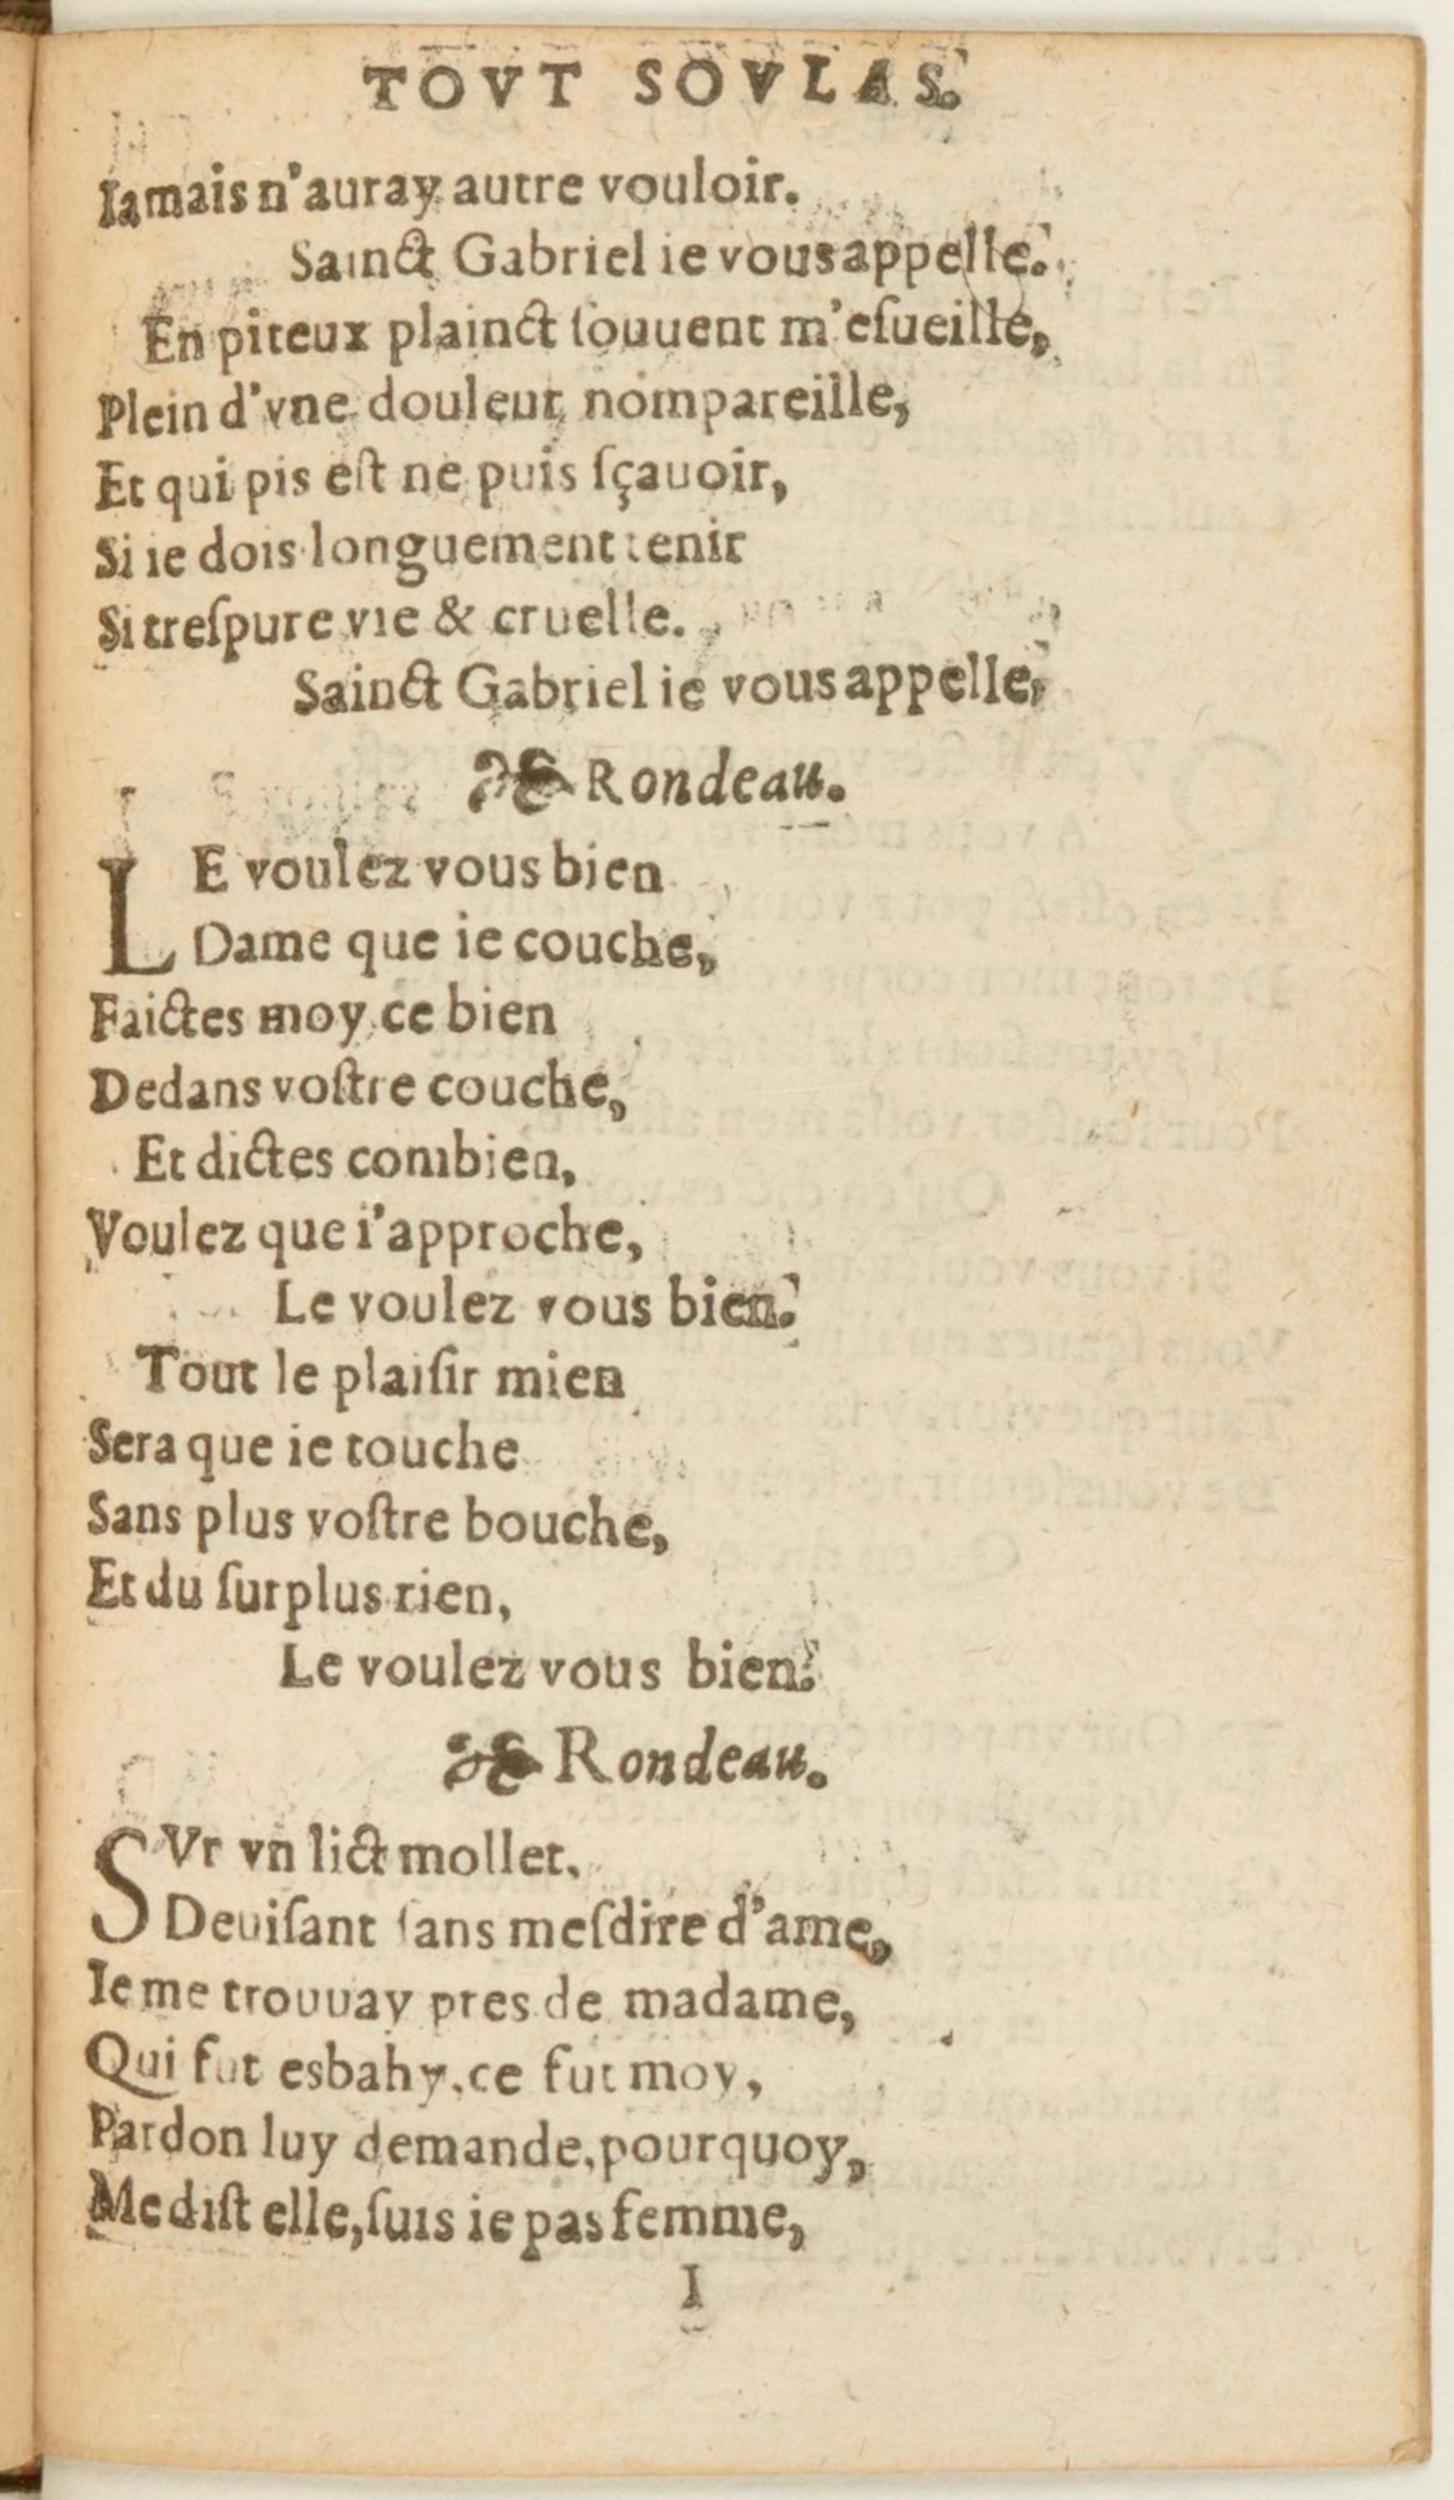 TOVT SOVLAS.
Iamais n'auray autre vouloir.
Sainct Gabriel ie vous appelle.
En piteux plainct ſouuent m'eſueille,
Plein d'vne douleur nompareille,
Et qui pis eſt ne puis ſçauoir,
Si ie dois longuement tenir
Si treſpure vie & cruelle.
Sainct Gabriel ie vous appelle,
Rondeau.
LE voulez vous bien
Dame que ie couche,
Faictes moy ce bien
Dedans voſtre couche,
Et dictes combien,
Voulez que i'approche,
Le voulez vous bien.
Tout le plaiſir mien
Sera que ie touche
Sans plus voſtre bouche,
Et du ſurplus rien,
Le voulez vous bien.
Rondeau.
SVr vn lict mollet,
Deuiſant ſans meſdire d'ame,
Ie me trouuay pres de madame,
Qui fut esbahy, ce fut moy,
Pardon luy demande, pourquoy,
Me diſt elle, ſuis ie pas femme,
I